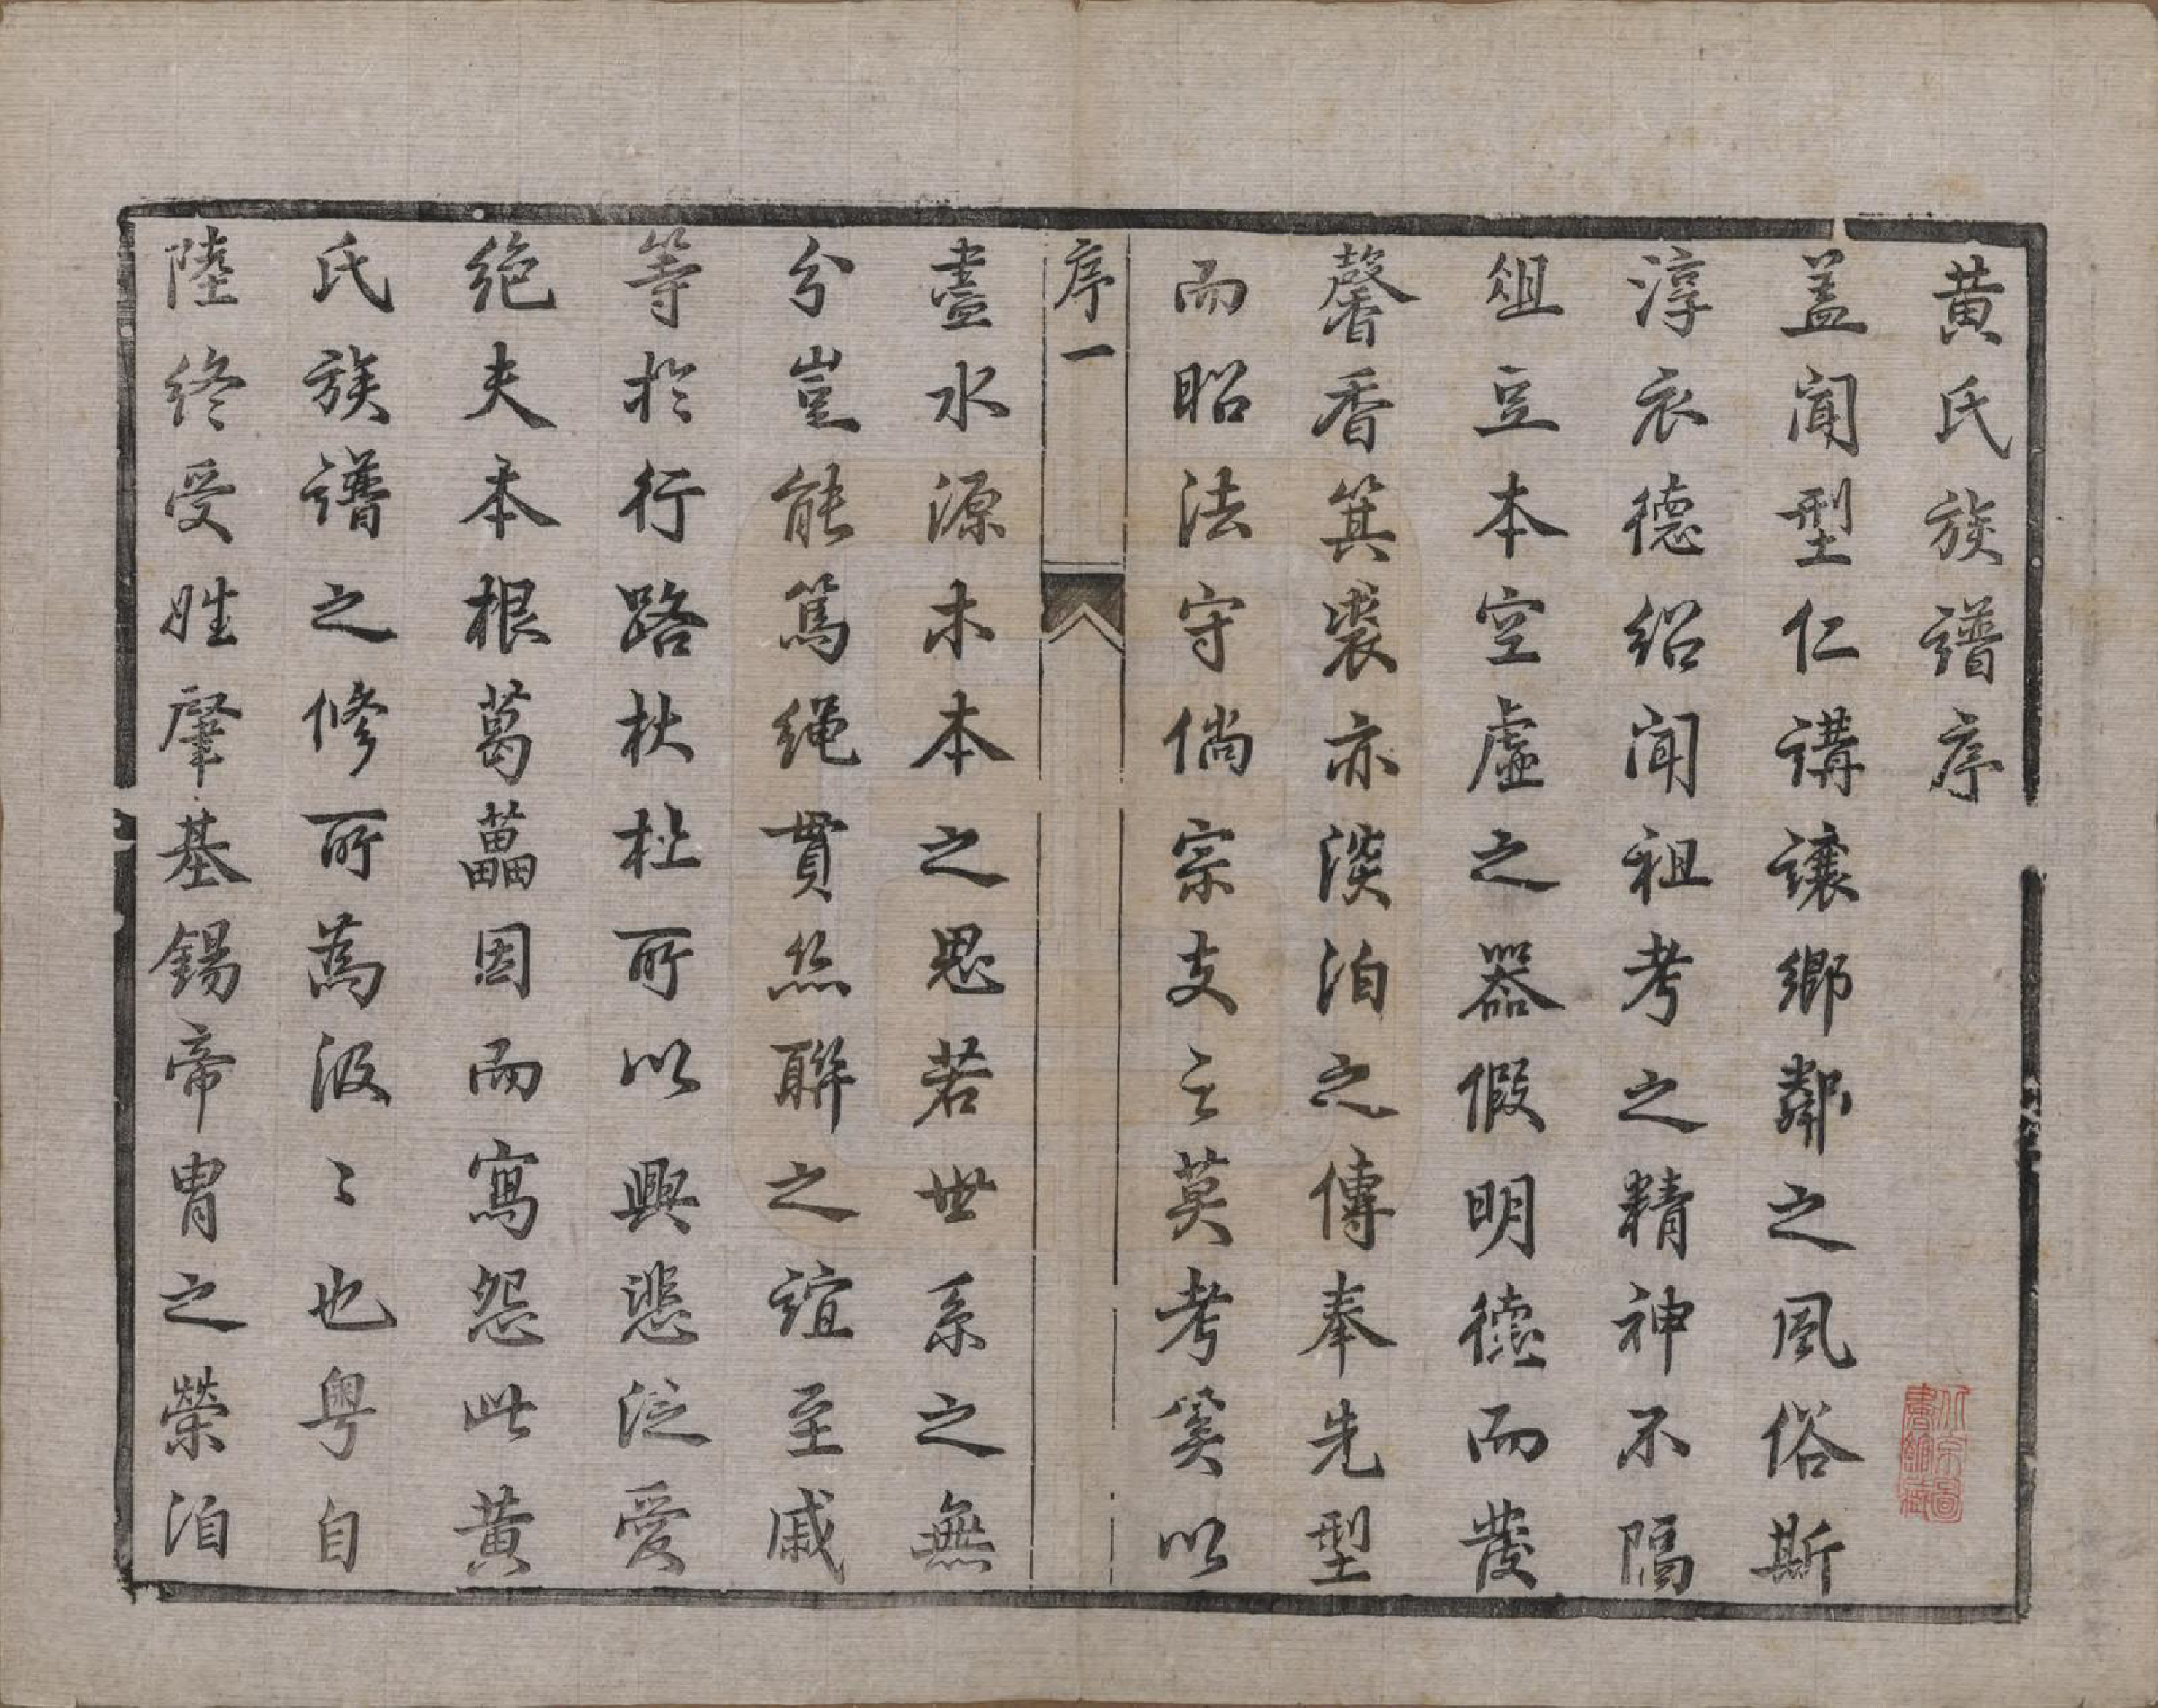 黃氏族譜序
盖聞型仁講讓鄉鄰之風俗斯
淳衣德紹聞祖考之精神不隔
俎豆本空虛之器假明德而發
馨香箕裘亦淡泊之傳奉先型
而昭法守倘宗支之莫考奚以
序一
盡水源木本之思若世系之無
分豈能篤繩貫絲聯之誼至戚
等於行路杕杜所以興悲泛愛
絶夫本根葛藟因而寫怨此黃
氏族譜之修所為汲〻也粤自
陸終受姓肇基錫帝胄之榮洎
北京圖
書館藏